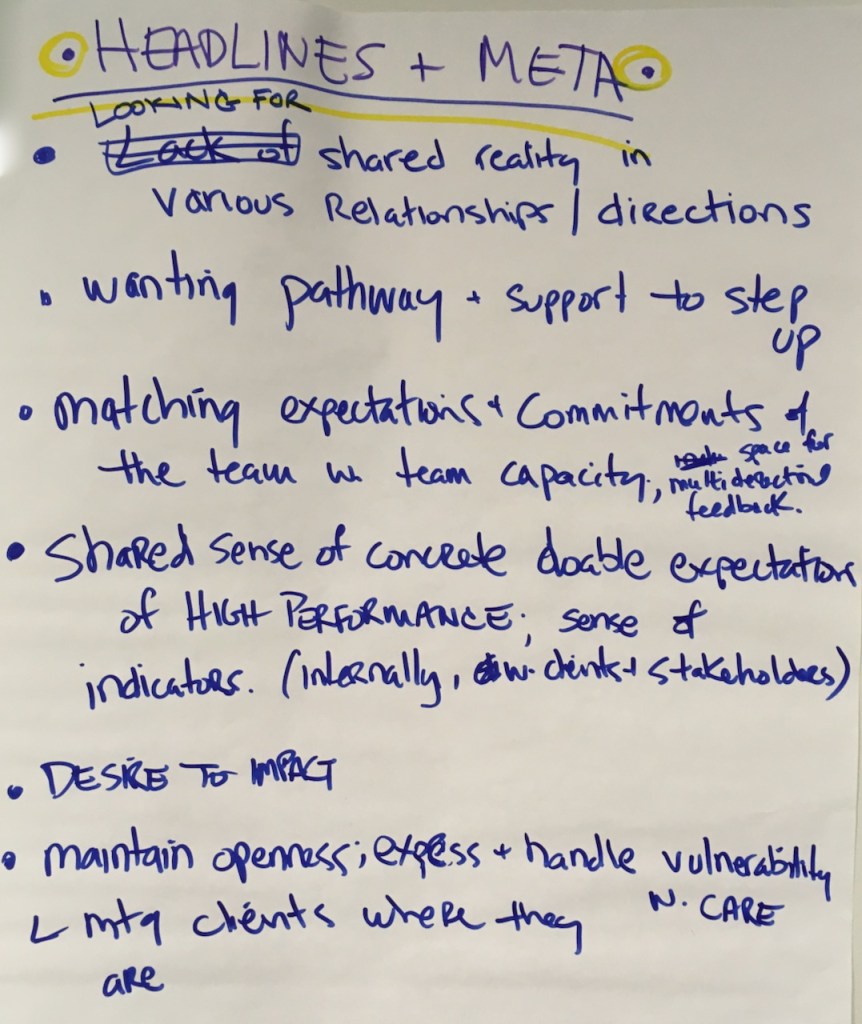 • HEADLINES + META •
LOOKING FOR
• Lack of shared reality in
various Relationships / directions
• wanting pathway + support to step
up
• matching expectations + commitments of
the team w. team capacity, space for
multidirectional
feedback.
• Shared sense of concrete doable expectations
of HIGH PERFORMANCE; sense of
indicators. (internally, w. clients + stakeholders)
• DESIRE TO IMPACT
• maintain openness; express + handle vulnerability
w. CARE
L mtg clients where they
are